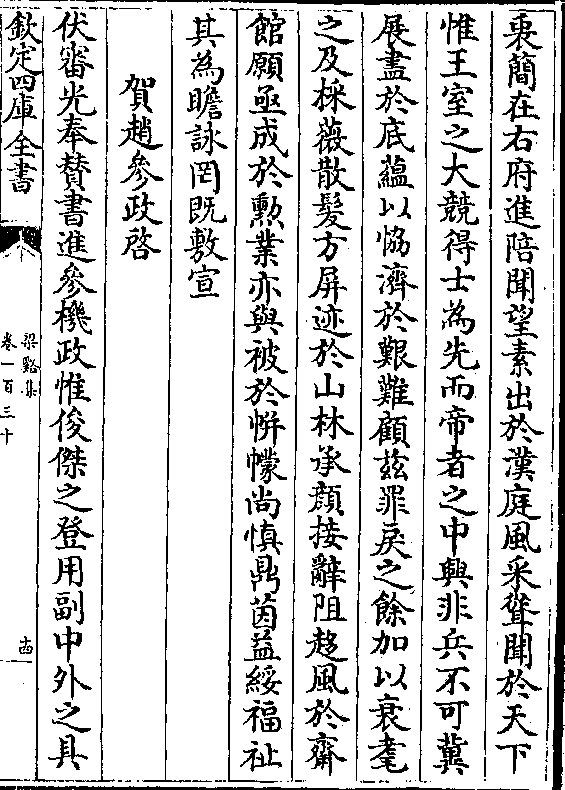 衷簡在右府進陪聞望素出於漢庭風采聳聞於天下
惟王室之大競得士為先而帝者之中興非兵不可冀
展盡於底蘊以恊濟於艱難顧兹罪戾之餘加以衰耄
之及採薇散髮方屏迹於山林承顔接辭阻趍風於齋
館願亟成於勲業亦與被於帡幪尚慎鼎茵益綏福祉
其為瞻詠罔既敷宣
賀趙參政啓
伏審光奉贊書進參機政惟俊傑之登用副中外之具
欽定四庫全書
梁谿集
卷一百三十
十四